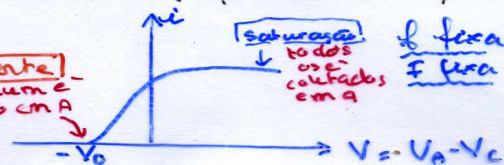 i
saturação
todos
os e⁻
coletados
em A
f fixa
I fixa
em A
-V₀
V = V_A - V_C